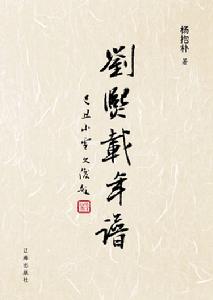 杨抱朴 著
劉熙載年譜
己丑小雪文俊題
辽海出版社